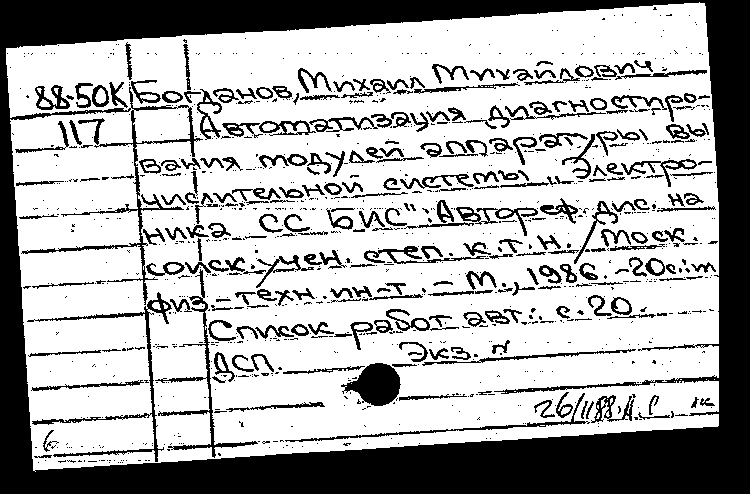 88-50К Богданов, Михаил Михайлович.
117 Автоматизация диагностиро-
вания модулей аппаратуры вы
числительной системы „Электро-
ника СС БИС": Автореф. дис. на
соиск. учен. степ. к.т.н. / Моск.
физ.-техн. ин-т. - М., 1986. -20с.:
Список работ авт.: с.20.
ДСП. Экз. N
6